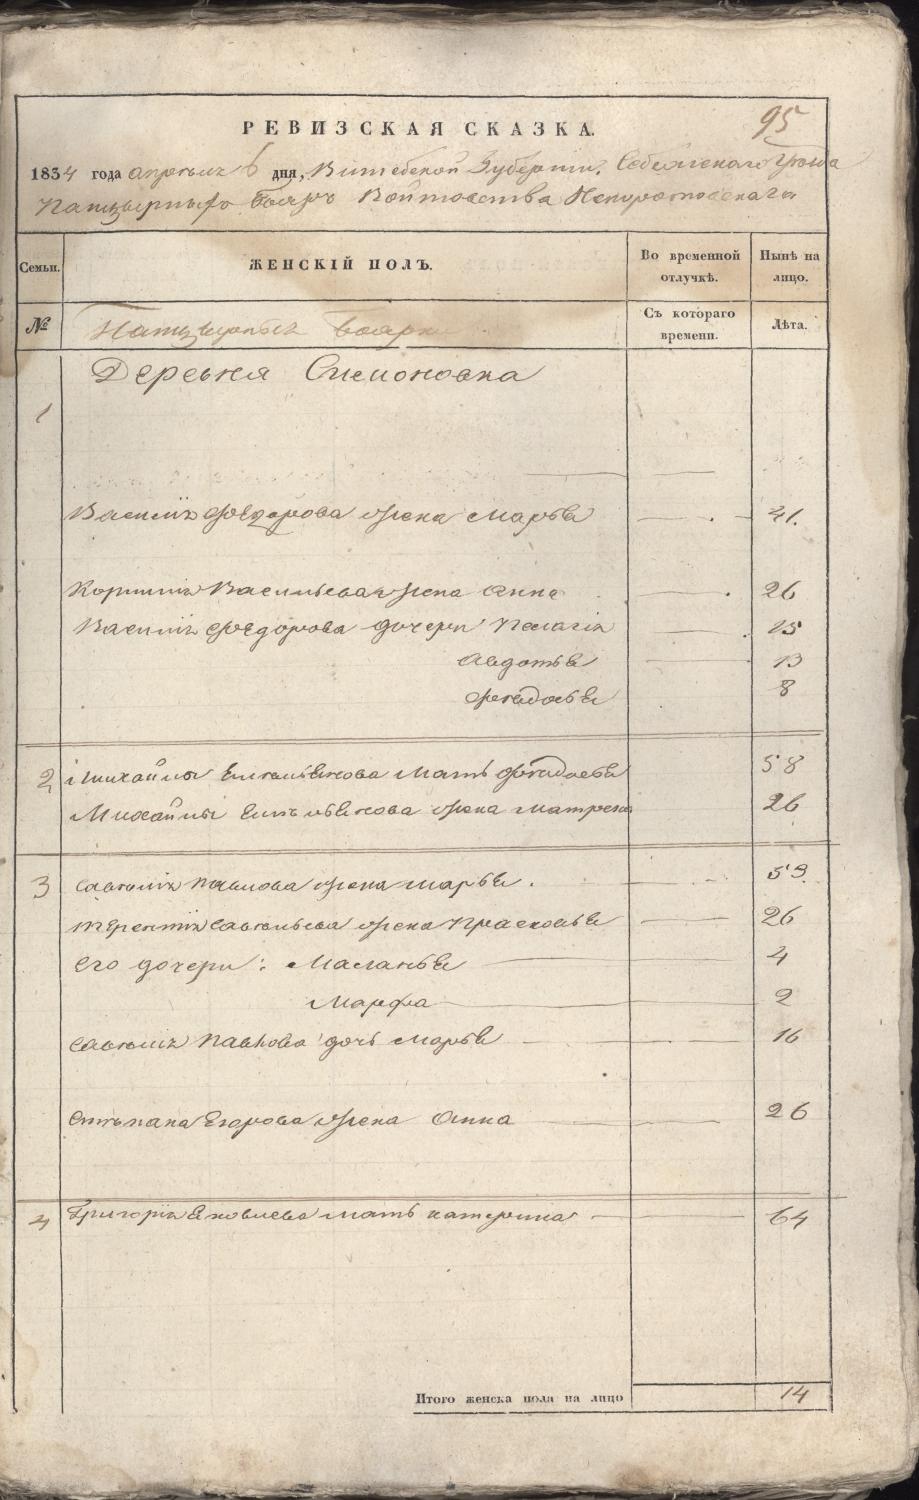 95
РЕВИЗСКАЯ СКАЗКА.
1834 года апреля 6 дня, Витебской Губернии, Себежскаго уезда
Панцырныхъ бояръ Войтовства Непоротовскаго
Семьи. ЖЕНСКІЙ ПОЛЪ. Во временной отлучкѣ. Нынѣ на лицо.
№ Панцырныя боярки Съ котораго времени. Лѣта.
Деревня Симоновка
1
Василія Федорова жена Марья 41.
Василева жена Анна 26
Василія Федорова дочери Пелагія 15
Авдотья 13
Федосья 8
2 Михайлы Емельянова мать Федосья 58
Михайлы Емельянова жена Матрена 26
3 Савелія Павлова жена Марья. 59
Терентія Савельева жена Прасковья 26
Его дочери: Маланья 4
Марфа 2
Савелія Павлова дочь Марья 16
Степана Егорова жена Анна 26
4 Григорія Яковлева мать Катерина 64
Итого женска пола на лицо 14